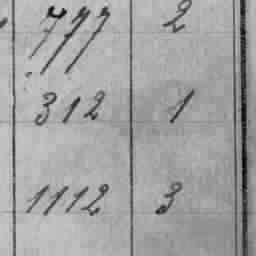 777 2
312 1
1112 3